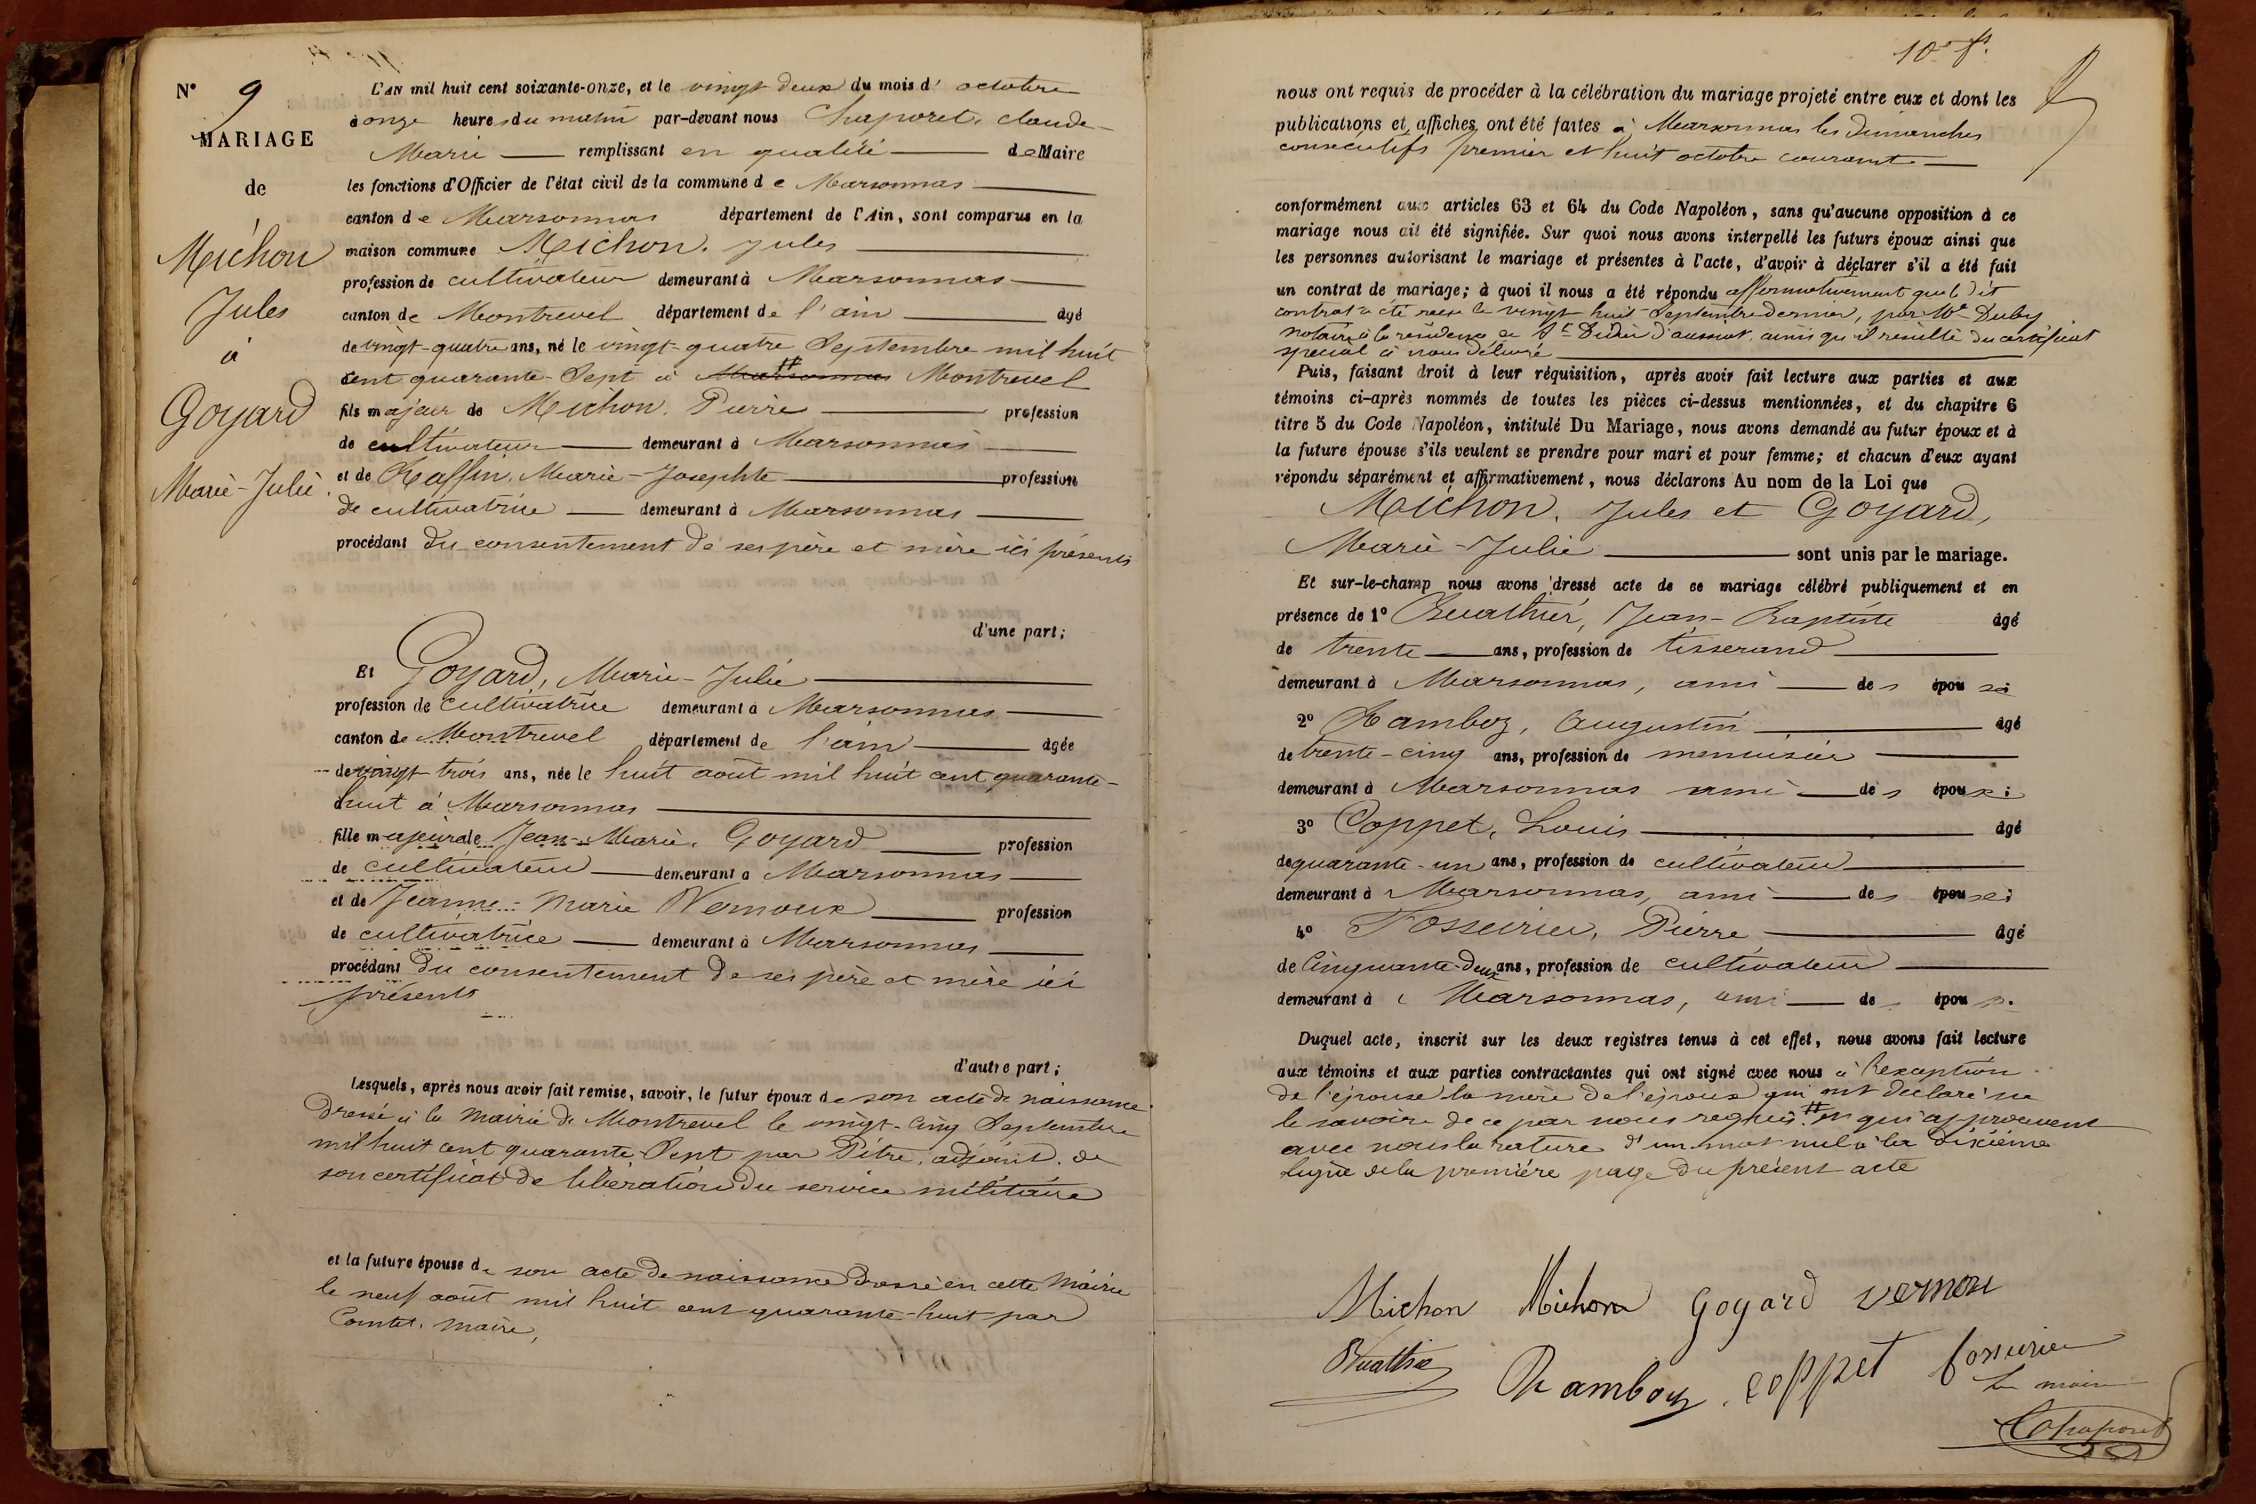 N° 9
MARIAGE
de
Michon
Jules
à
Goyard
Marie-Julie
L'AN mil huit cent soixante-onze, et le vingt deux du mois d' octobre
à onze heures du matin par-devant nous Chaporet, Claude-
Marie remplissant en qualité de Maire
les fonctions d'Officier de l'état civil de la commune de Marsonnas
canton de Marsonnas département de l'Ain, sont comparus en la
maison commune Michon, Jules
profession de cultivateur demeurant à Marsonnas
canton de Montrevel département de l'ain âgé
de vingt-quatre ans, né le vingt-quatre Septembre mil huit
cent quarante-Sept à Marsonnas Montrevel
fils majeur de Michon, Pierre profession
de cultivateur demeurant à Marsonnas
et de Raffin, Marie-Josephte profession
de cultivatrice demeurant à Marsonnas
procédant du consentement de ses père et mère ici présents
d'une part;
Et Goyard, Marie-Julie
profession de cultivatrice demeurant à Marsonnas
canton de Montrevel département de l'ain âgée
de vingt trois ans, née le huit août mil huit cent quarante-
huit à Marsonnas
fille majeure de Jean-Marie, Goyard profession
de cultivateur demeurant à Marsonnas
et de Jeanne-Marie Vernoux profession
de cultivatrice demeurant à Marsonnas
procédant du consentement de ses père et mère ici
présents
d'autre part;
Lesquels, après nous avoir fait remise, savoir, le futur époux de son acte de naissance
dressé à la Mairie de Montrevel le vingt-cinq Septembre
mil huit cent quarante-Sept par Pitre, adjoint. de
son certificat de libération du service militaire
et la future épouse de son acte de naissance dressé en cette Mairie
le neuf août mil huit cent quarante-huit par
Comtet, maire,
10e ft.
nous ont requis de procéder à la célébration du mariage projeté entre eux et dont les
publications et affiches ont été faites à Marsonnas les dimanches
consécutifs premier et huit octobre courant
conformément aux articles 63 et 64 du Code Napoléon, sans qu'aucune opposition à ce
mariage nous ait été signifiée. Sur quoi nous avons interpellé les futurs époux ainsi que
les personnes autorisant le mariage et présentes à l'acte, d'avoir à déclarer s'il a été fait
un contrat de mariage; à quoi il nous a été répondu affirmativement que le dit
contrat a été reçu le vingt huit Septembre dernier, par Me Duby
notaire à la résidence de St Didier d'aussiat, ainsi qu'il résulte du certificat
spécial à nous délivré
Puis, faisant droit à leur réquisition, après avoir fait lecture aux parties et aux
témoins ci-après nommés de toutes les pièces ci-dessus mentionnées, et du chapitre 6
titre 5 du Code Napoléon, intitulé Du Mariage, nous avons demandé au futur époux et à
la future épouse s'ils veulent se prendre pour mari et pour femme; et chacun d'eux ayant
répondu séparément et affirmativement, nous déclarons Au nom de la Loi que
Michon, Jules et Goyard,
Marie-Julie sont unis par le mariage.
Et sur-le-champ nous avons dressé acte de ce mariage célébré publiquement et en
présence de 1° Buathier, Jean-Baptiste âgé
de trente ans, profession de tisserand
demeurant à Marsonnas, ami des époux;
2° Ramboz, Augustin âgé
de trente-cinq ans, profession de menuisier
demeurant à Marsonnas ami des époux;
3° Coppet, Louis âgé
de quarante-un ans, profession de cultivateur
demeurant à Marsonnas, ami des époux;
4° Fosseurier, Pierre âgé
de Cinquante-deux ans, profession de cultivateur
demeurant à Marsonnas, ami des époux.
Duquel acte, inscrit sur les deux registres tenus à cet effet, nous avons fait lecture
aux témoins et aux parties contractantes qui ont signé avec nous à l'exception
de l'épouse la mère de l'époux qui ont déclaré ne
le savoir de ce par nous requis et qui approuvent
avec nous la rature d'un mot nul à la dixième
ligne de la première page du présent acte
Michon Michon Goyard vernou
Buathier Ramboz coppet fosseurier
Le maire
Chaporet